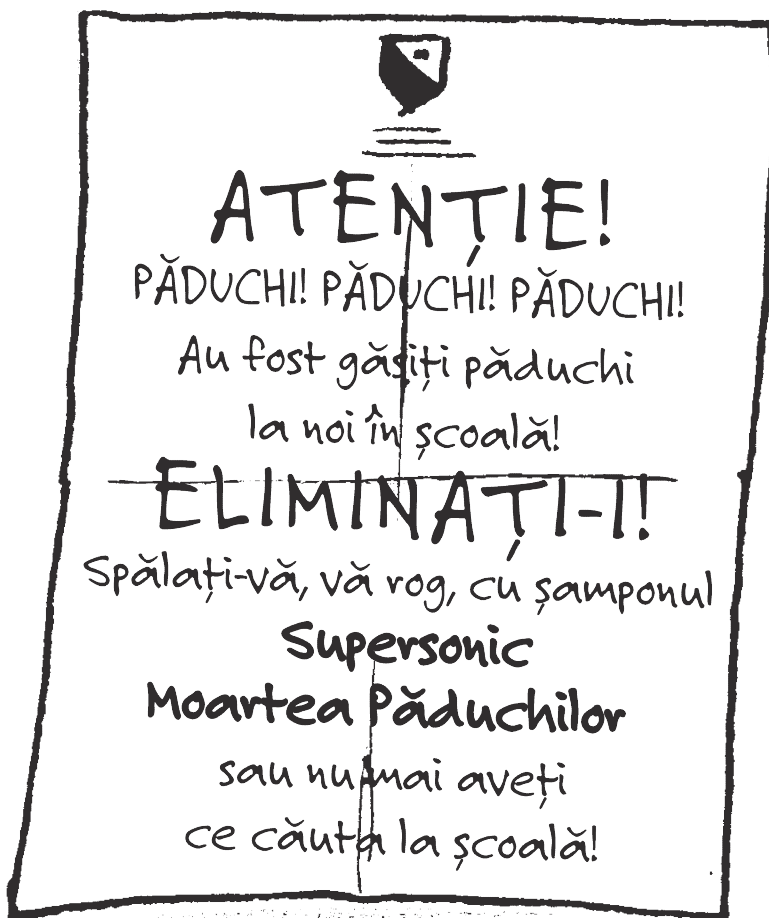 ATENȚIE!
PĂDUCHI! PĂDUCHI! PĂDUCHI!
Au fost găsiți păduchi
la noi în școală!
ELIMINAȚI-I!
Spălați-vă, vă rog, cu șamponul
Supersonic
Moartea Păduchilor
sau nu mai aveți
ce căuta la școală!